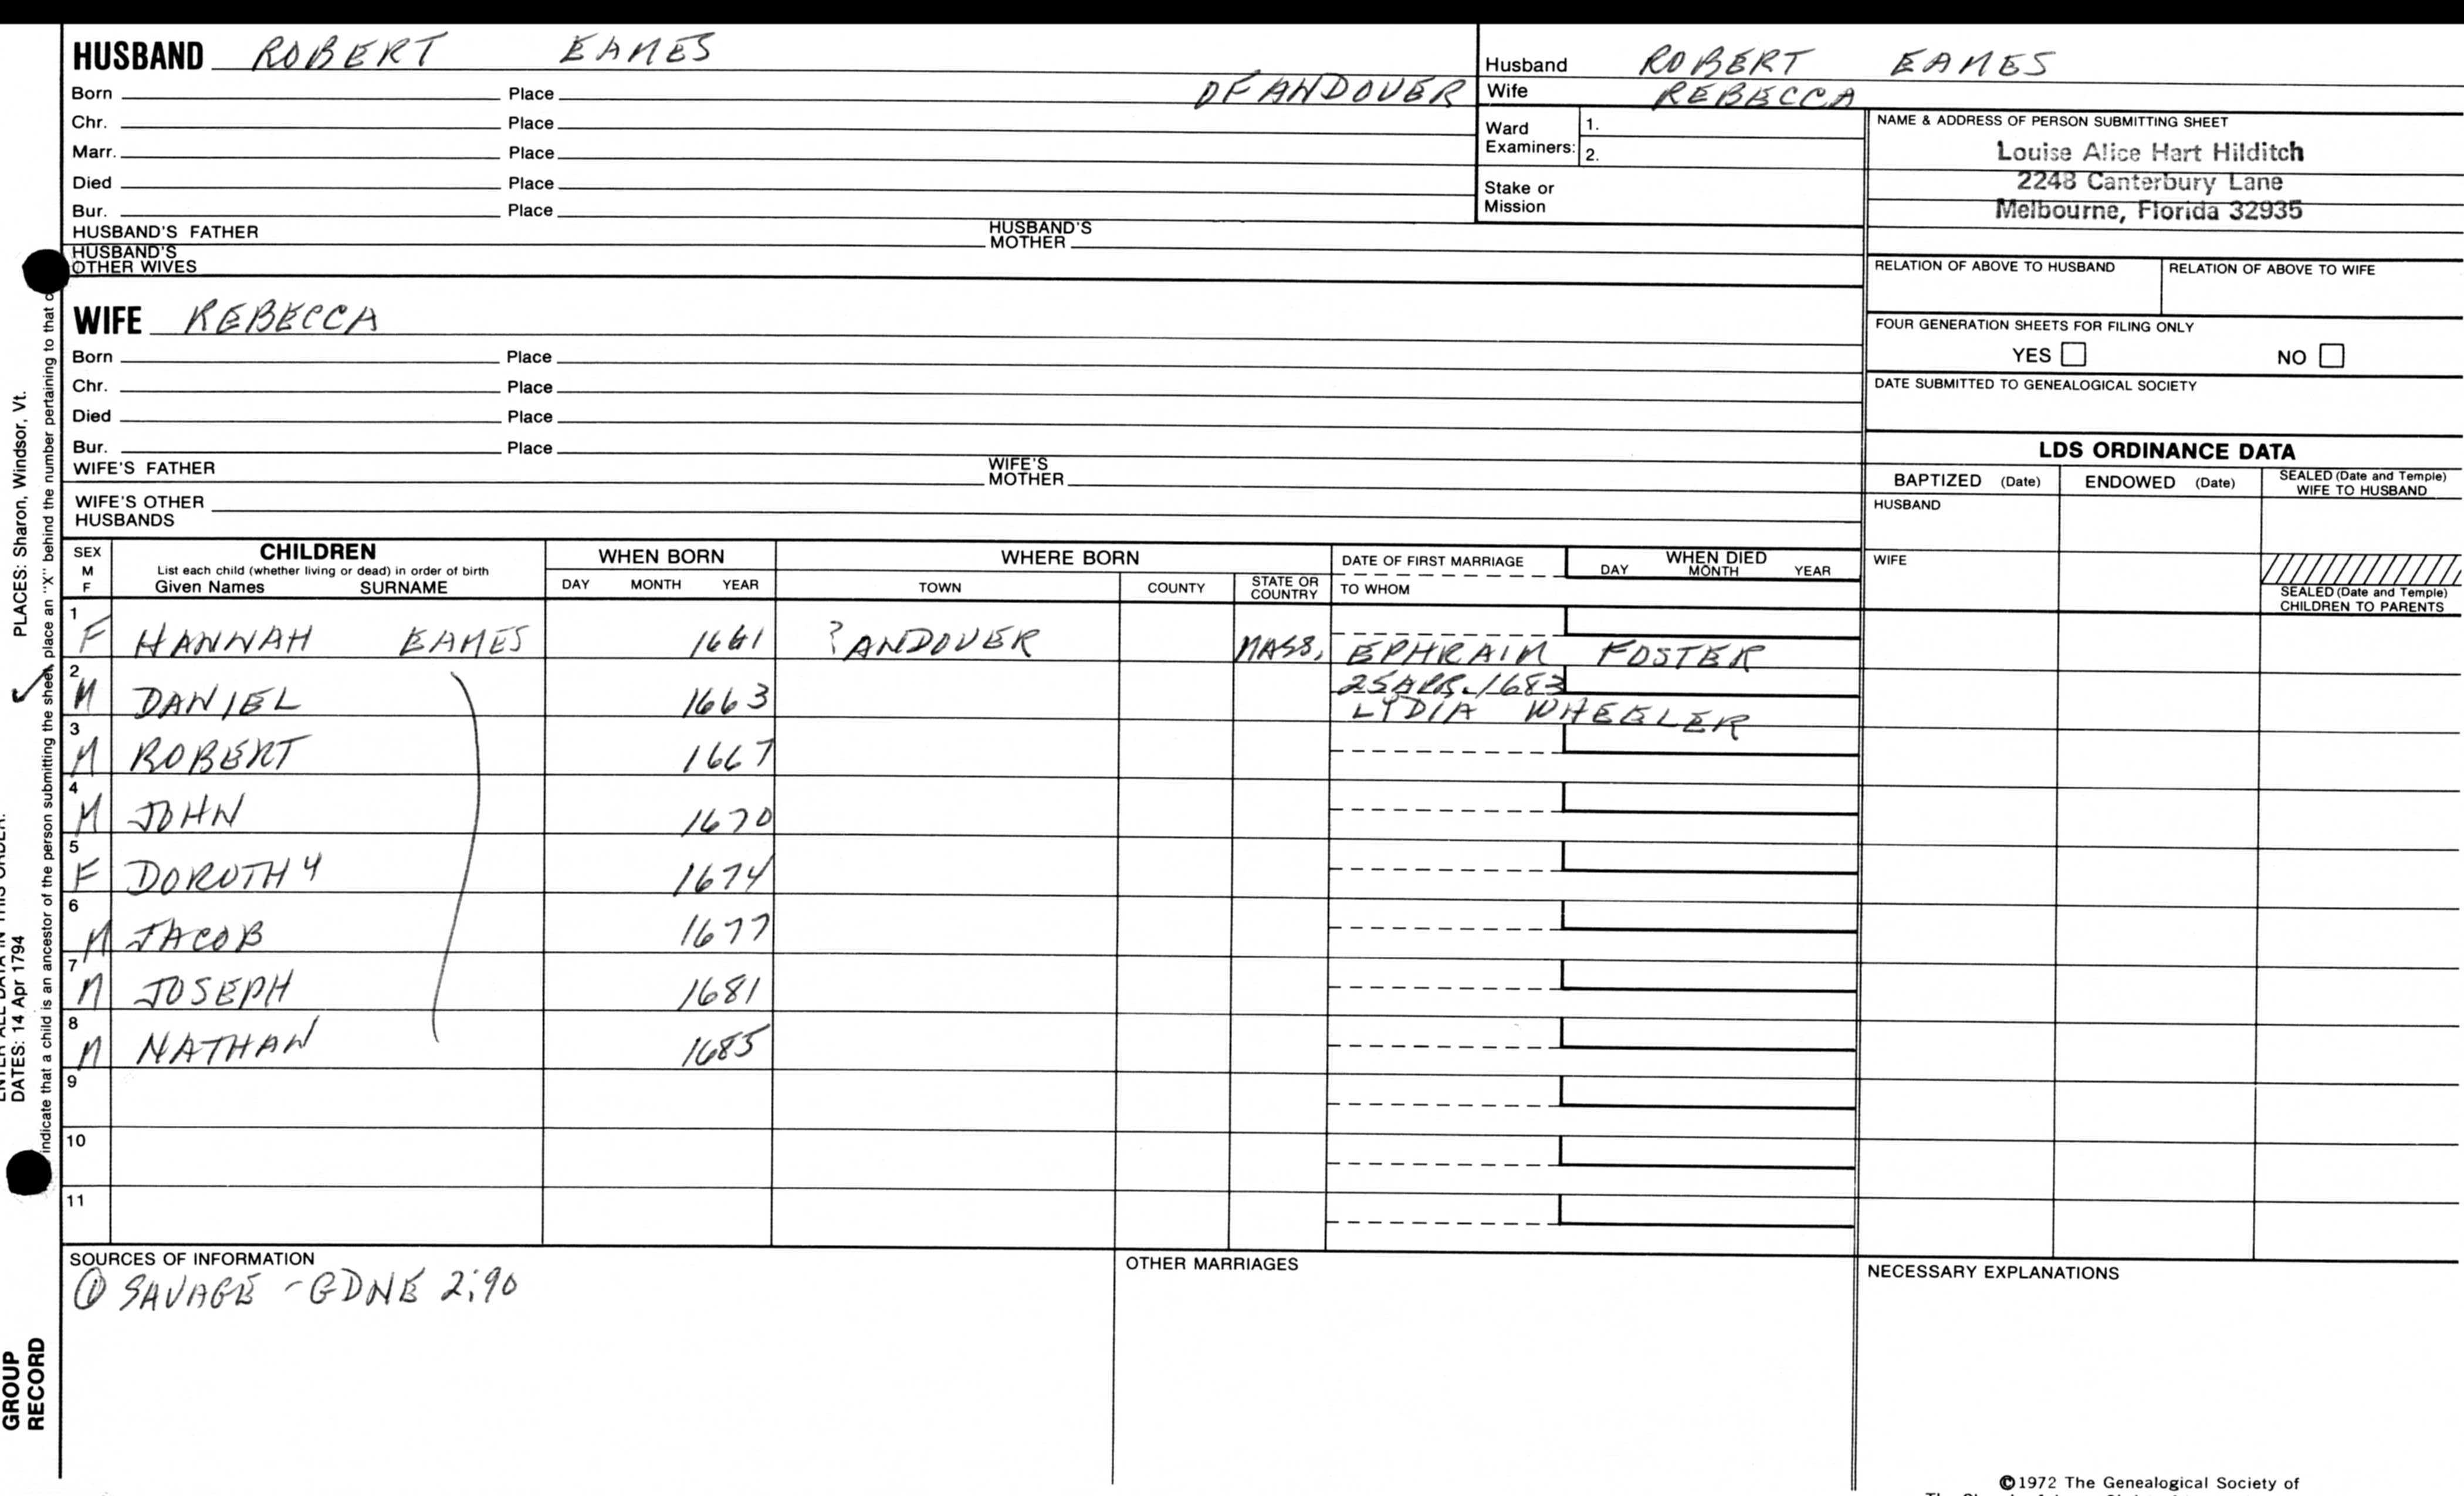 HUSBAND ROBERT EAMES
OF ANDOVER
Born Place
Chr. Place
Marr. Place
Died Place
Bur. Place
HUSBAND'S FATHER HUSBAND'S MOTHER
HUSBAND'S OTHER WIVES
Husband ROBERT EAMES
Wife REBECCA
Ward Examiners: 1.
2.
Stake or Mission
NAME & ADDRESS OF PERSON SUBMITTING SHEET
Louise Alice Hart Hilditch
2248 Canterbury Lane
Melbourne, Florida 32935
RELATION OF ABOVE TO HUSBAND RELATION OF ABOVE TO WIFE
FOUR GENERATION SHEETS FOR FILING ONLY
YES NO
DATE SUBMITTED TO GENEALOGICAL SOCIETY
WIFE REBECCA
Born Place
Chr. Place
Died Place
Bur. Place
WIFE'S FATHER WIFE'S MOTHER
WIFE'S OTHER HUSBANDS
LDS ORDINANCE DATA
BAPTIZED (Date) ENDOWED (Date) SEALED (Date and Temple) WIFE TO HUSBAND
HUSBAND
WIFE
SEALED (Date and Temple) CHILDREN TO PARENTS
SEX M F
CHILDREN
List each child (whether living or dead) in order of birth
Given Names SURNAME
WHEN BORN
DAY MONTH YEAR
WHERE BORN
TOWN COUNTY STATE OR COUNTRY
DATE OF FIRST MARRIAGE
TO WHOM
WHEN DIED
DAY MONTH YEAR
1 F HANNAH EAMES 1661 ? ANDOVER MASS. EPHRAIM FOSTER
2 M DANIEL 1663 25 APR. 1683
LYDIA WHEELER
3 M ROBERT 1667
4 M JOHN 1670
5 F DOROTHY 1674
6 M JACOB 1677
7 M JOSEPH 1681
8 M NATHAN 1685
9
10
11
SOURCES OF INFORMATION
① SAVAGE - GDNE 2:90
OTHER MARRIAGES
NECESSARY EXPLANATIONS
©1972 The Genealogical Society of
PLACES: Sharon, Windsor, Vt.
DATES: 14 Apr 1794
indicate that a child is an ancestor of the person submitting the sheet, place an "X" behind the number pertaining to that
GROUP
RECORD